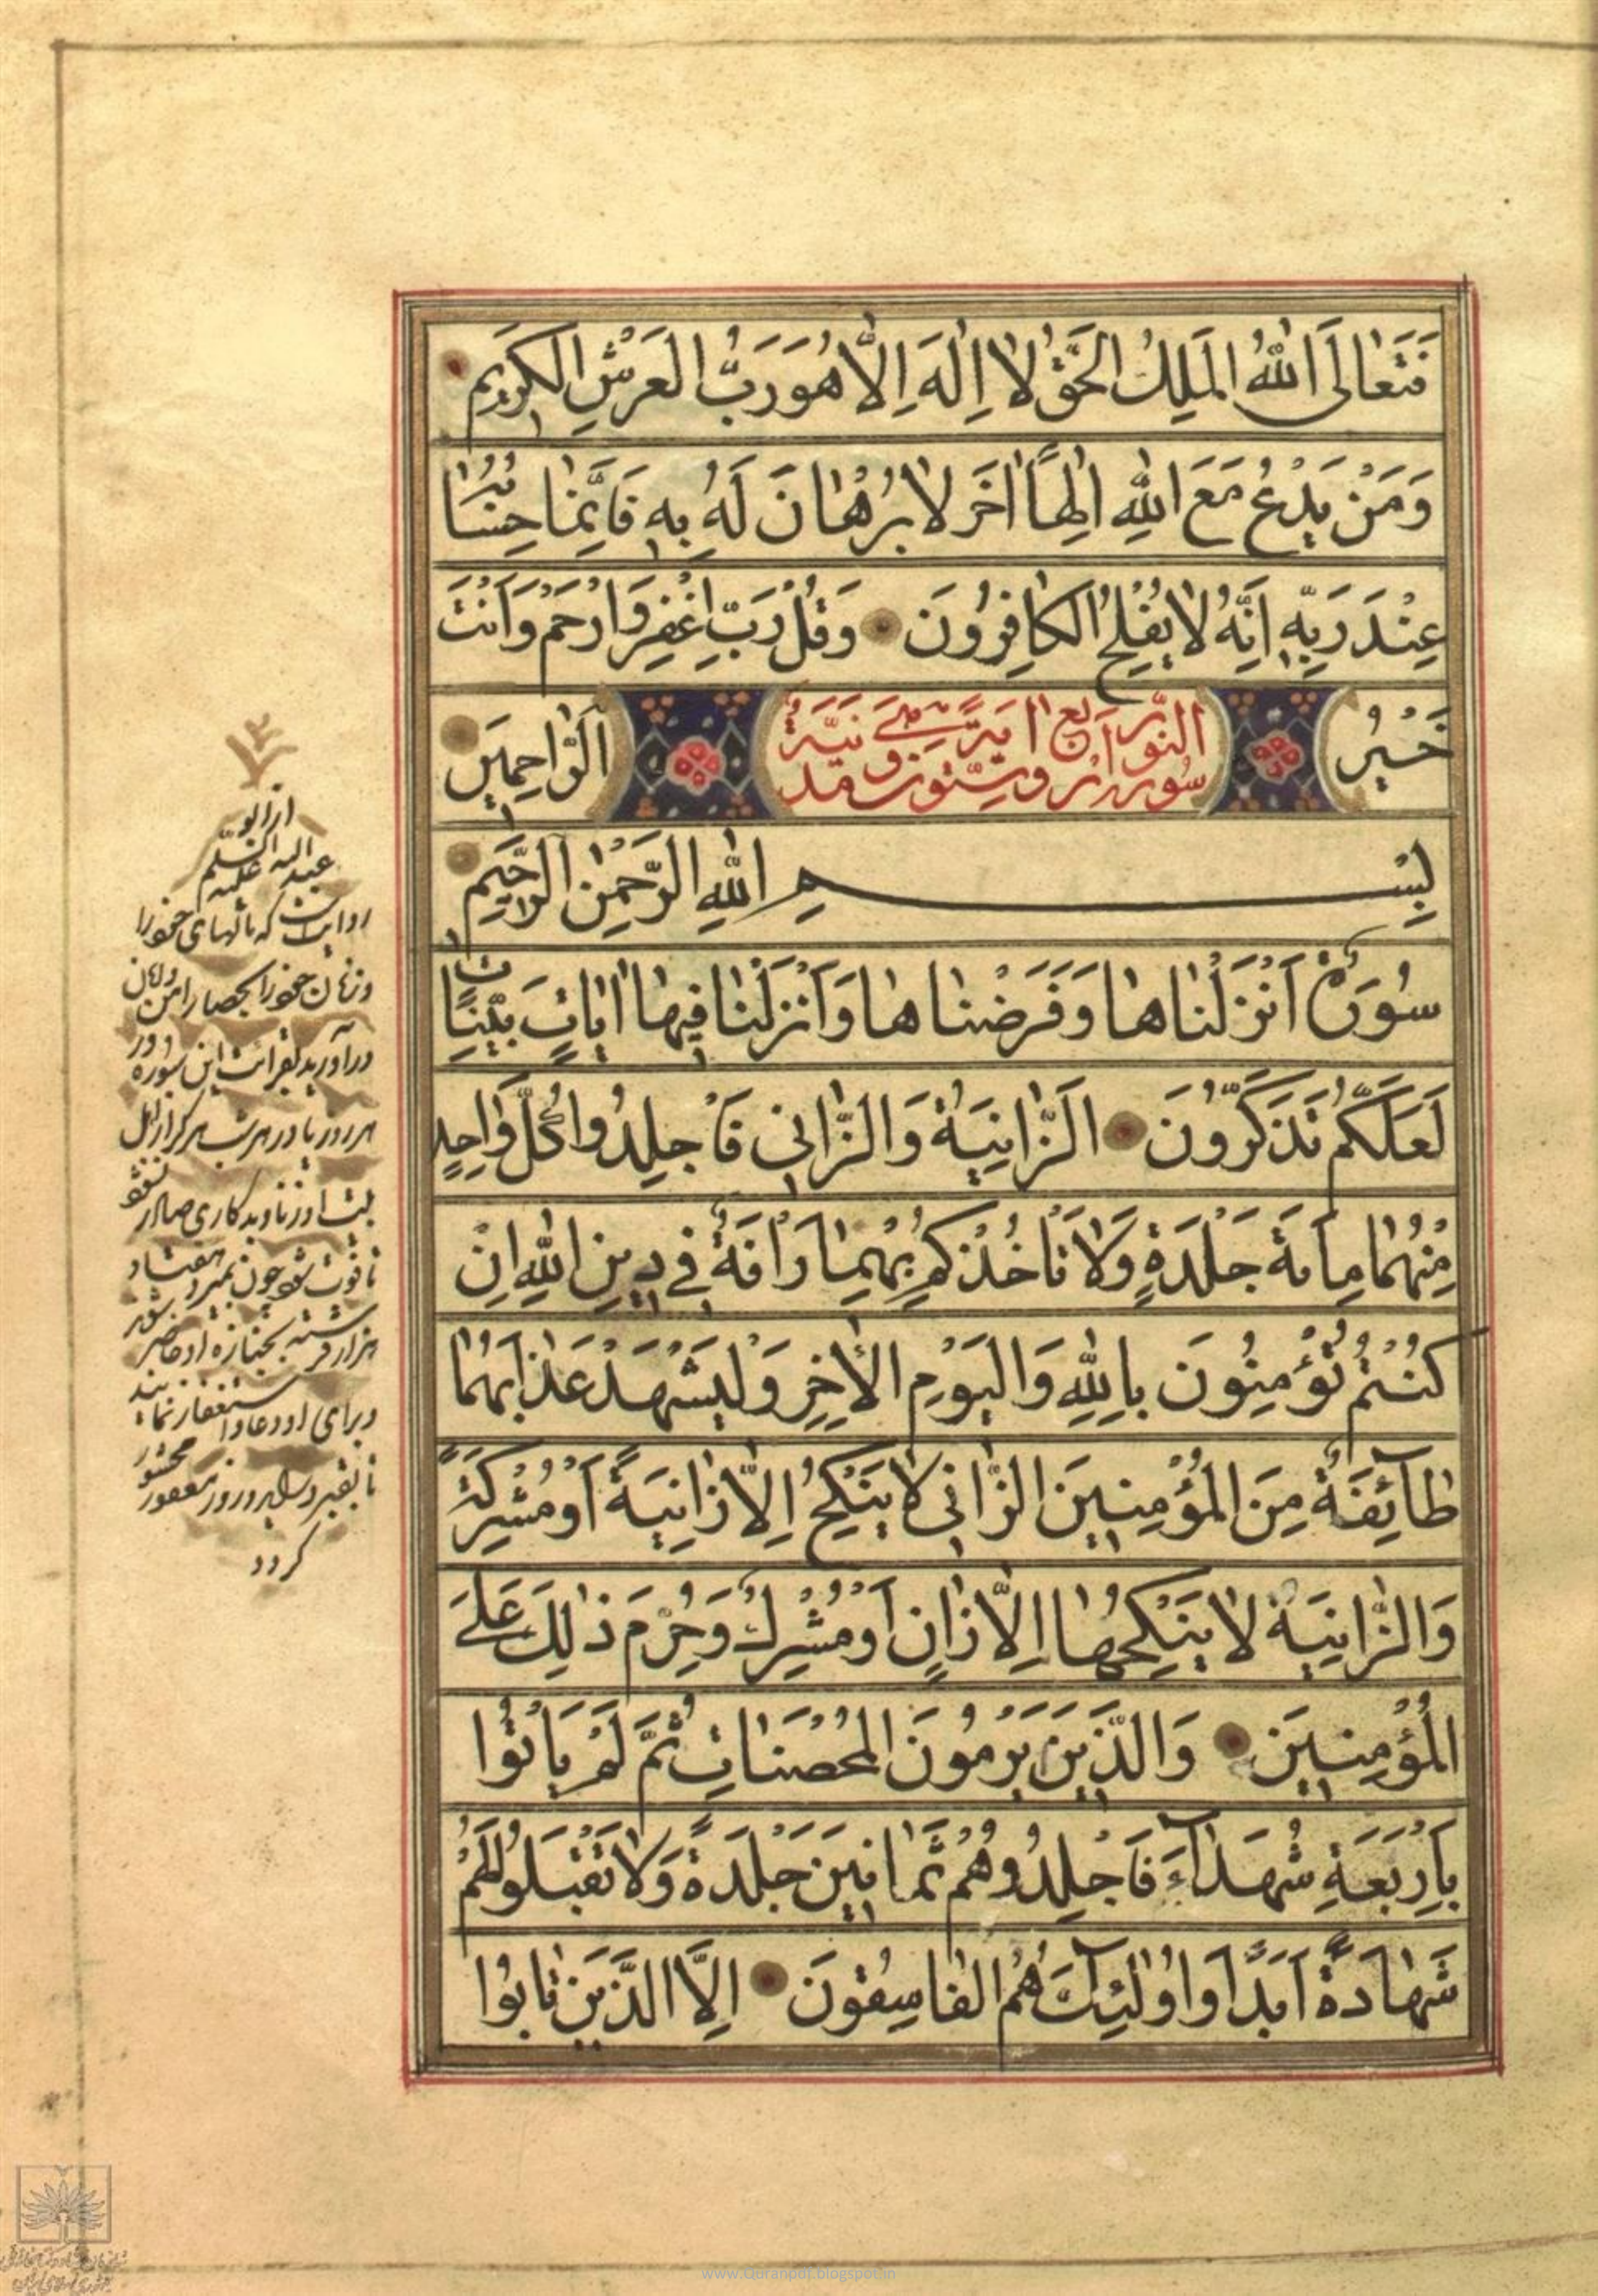 فَتَعَالَى اللهُ الْمَلِكُ الْحَقُّ لَا اِلٰهَ اِلَّا هُوَ رَبُّ الْعَرْشِ الْكَرِيمِ
وَمَنْ يَدْعُ مَعَ اللهِ اِلٰهًا اٰخَرَ لَا بُرْهَانَ لَهُ بِهِ فَاِنَّمَا حِسَابُهُ
عِنْدَ رَبِّهِ اِنَّهُ لَا يُفْلِحُ الْكَافِرُونَ وَقُلْ رَبِّ اغْفِرْ وَارْحَمْ وَاَنْتَ
خَيْرُ الرَّاحِمِينَ
سورة النور اربع وستون اية مدنية
بِسْمِ اللهِ الرَّحْمٰنِ الرَّحِيمِ
سُورَةٌ اَنْزَلْنَاهَا وَفَرَضْنَاهَا وَاَنْزَلْنَا فِيهَا اٰيَاتٍ بَيِّنَاتٍ
لَعَلَّكُمْ تَذَكَّرُونَ اَلزَّانِيَةُ وَالزَّانِي فَاجْلِدُوا كُلَّ وَاحِدٍ
مِنْهُمَا مِائَةَ جَلْدَةٍ وَلَا تَأْخُذْكُمْ بِهِمَا رَأْفَةٌ فِي دِينِ اللهِ اِنْ
كُنْتُمْ تُؤْمِنُونَ بِاللهِ وَالْيَوْمِ الْاٰخِرِ وَلْيَشْهَدْ عَذَابَهُمَا
طَآئِفَةٌ مِنَ الْمُؤْمِنِينَ الزَّانِي لَا يَنْكِحُ اِلَّا زَانِيَةً اَوْ مُشْرِكَةً
وَالزَّانِيَةُ لَا يَنْكِحُهَا اِلَّا زَانٍ اَوْ مُشْرِكٌ وَحُرِّمَ ذٰلِكَ عَلَى
الْمُؤْمِنِينَ وَالَّذِينَ يَرْمُونَ الْمُحْصَنَاتِ ثُمَّ لَمْ يَأْتُوا
بِاَرْبَعَةِ شُهَدَآءَ فَاجْلِدُوهُمْ ثَمَانِينَ جَلْدَةً وَلَا تَقْبَلُوا لَهُمْ
شَهَادَةً اَبَدًا وَاُولٰئِكَ هُمُ الْفَاسِقُونَ اِلَّا الَّذِينَ تَابُوا
از ابو
عبد الله علیه السلم
روایت که مالهای خود را
و زنان خود را بحصار امن و امان
درآورید بقرائت این سوره و در
هر روز یا در هر شب هر کرا از اهل
بیت او زنا و بدکاری صادر نشود
تا فوت شود چون بمیرد هفتاد
هزار فرشته بجنازه او حاضر شوند
و برای او دعا و استغفار نمایند
تا بقبر و روز مغفور محشور
کردد
www.Quranpdf.blogspot.in